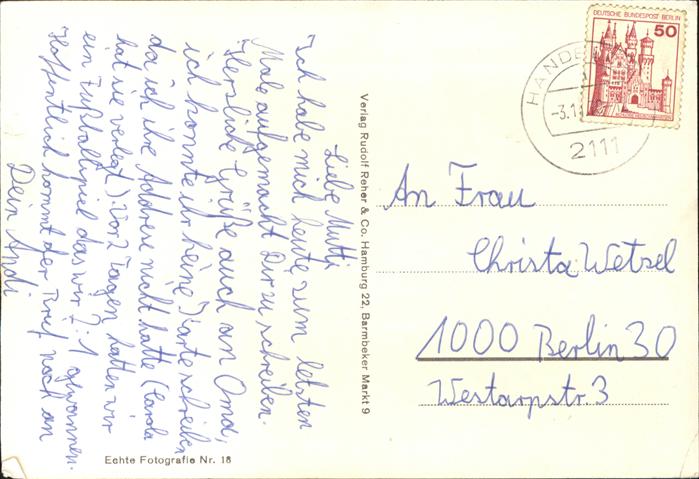 Liebe Mutti
Ich habe mich heute zum letzten
Mal aufgemacht Dir zu schreiben.
Herzliche Grüße auch an Oma,
ich konnte ihr keine Karte schreiben
da ich ihre Addresse nicht hatte (Carola
hat sie verlegt). Vor 2 Tagen hatten wir
ein Fußballspiel das wir 7:1 gewannen.
Hoffentlich kommt der Brief noch an
Dein Andi
Echte Fotografie Nr. 18
Verlag Rudolf Reher & Co. Hamburg 22, Barmbeker Markt 9
DEUTSCHE BUNDESPOST BERLIN
50
-3.1
2111
An Frau
Christa Wetzel
1000 Berlin 30
Westarpstr. 3